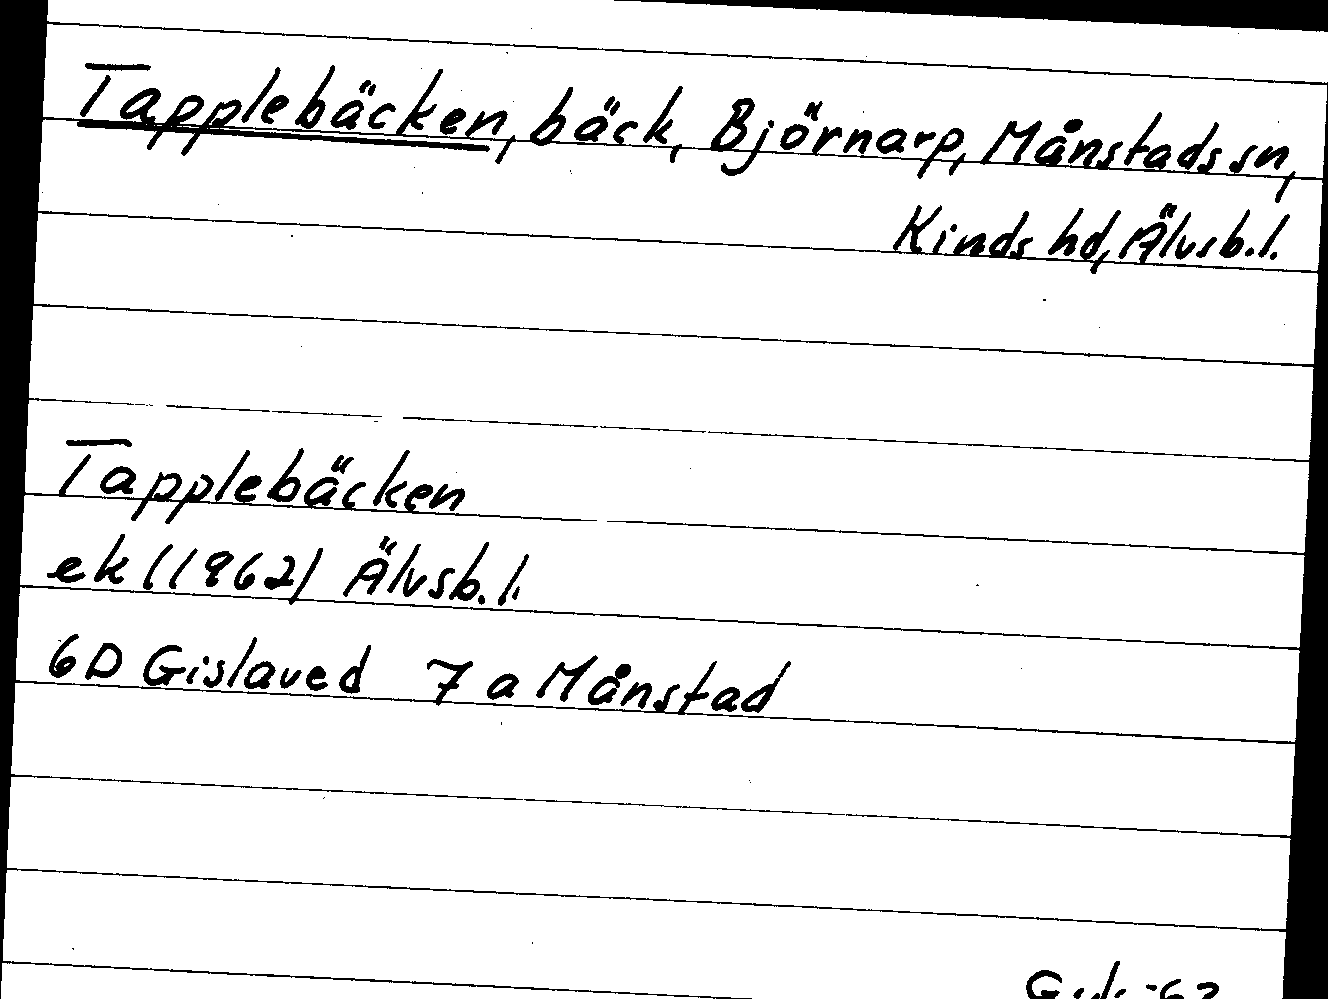 Tapplebäcken, bäck, Björnarp, Månstads sn,
Kinds hd, Älvsb.l.
Tapplebäcken
ek (1962) Älvsb.l.
6D Gislaved 7a Månstad